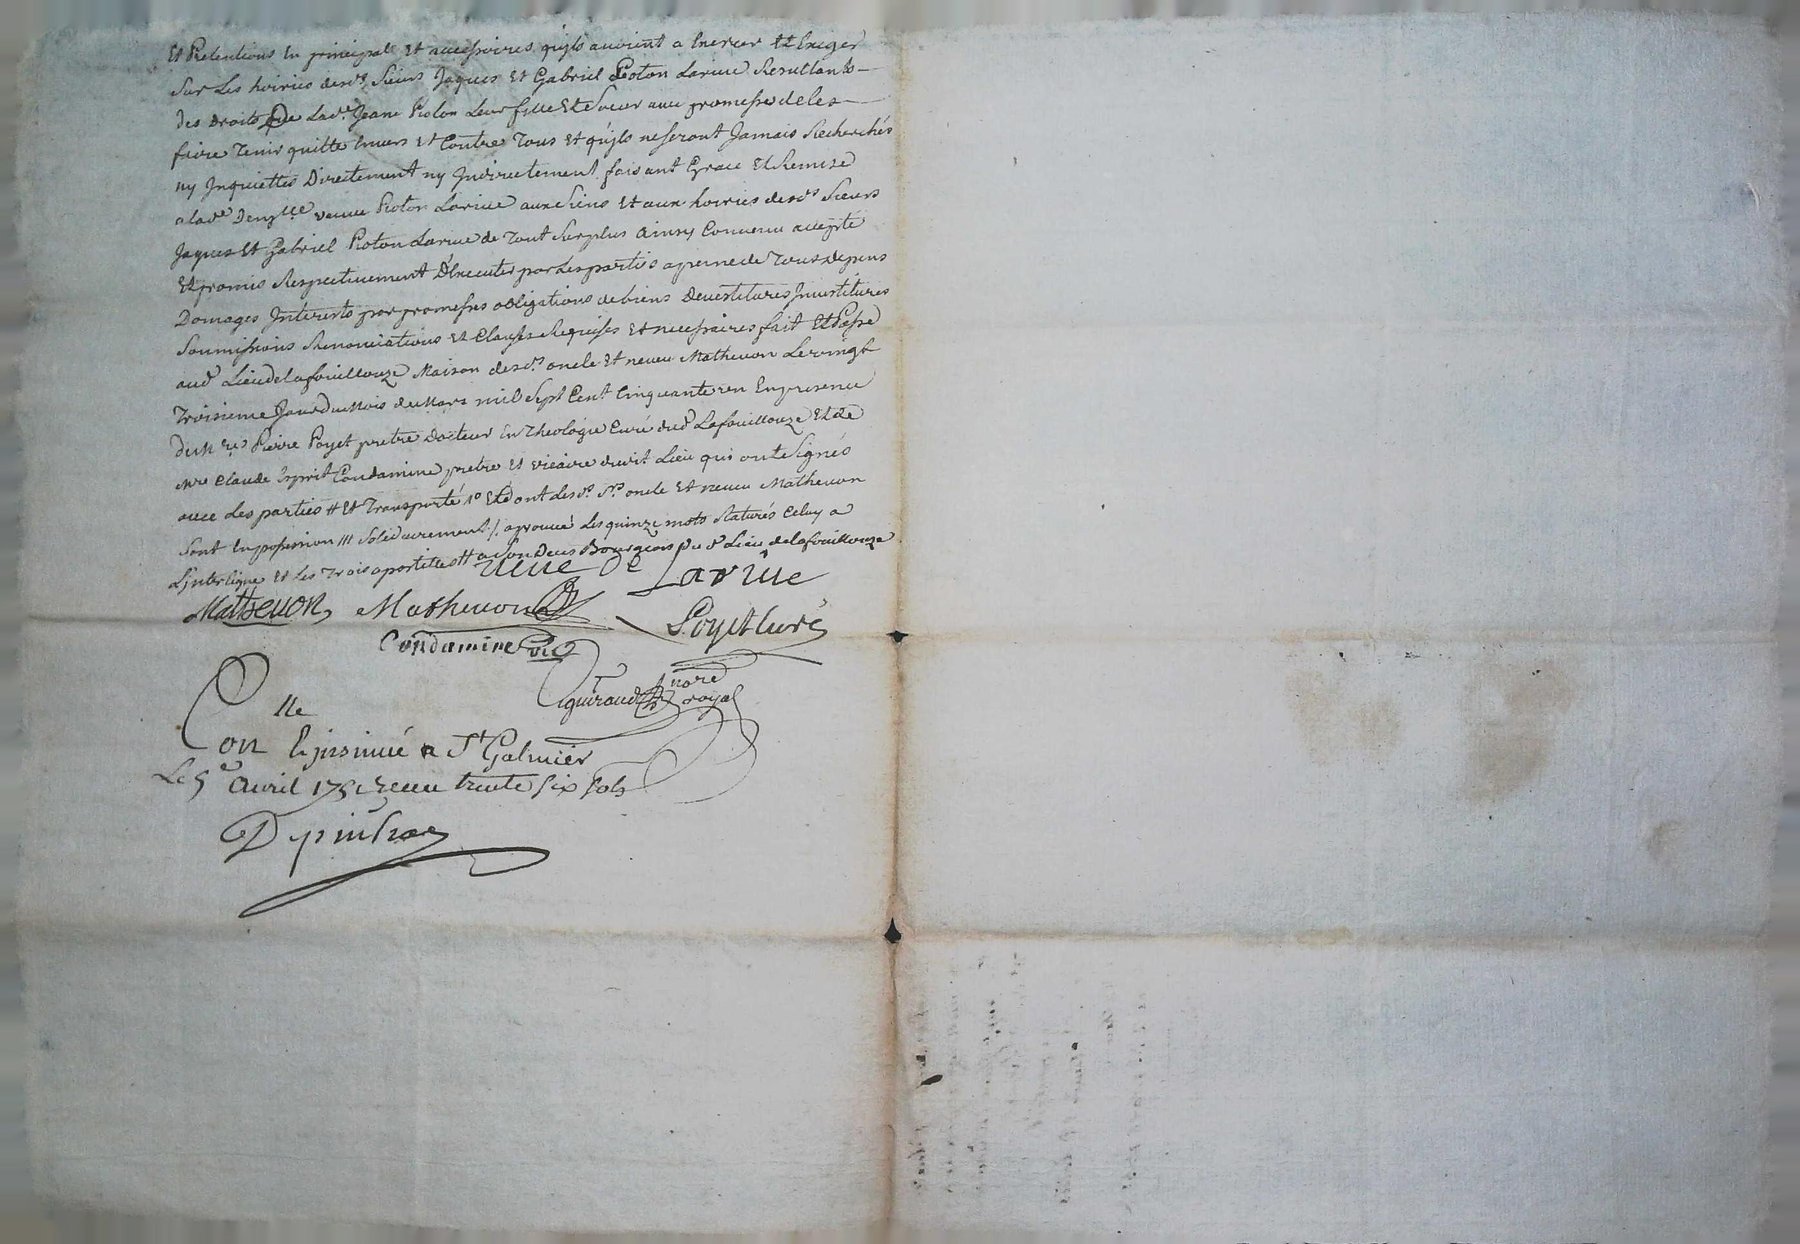 Et Pretentions En principal Et accessoires quils avoient a Exercer Et Exiger
Sur Les hoiries desd.s Sieurs Jaques Et Gabriel Roton Larive Resultants
Des Droits De Lad.e Jeane Roton Leur fille Et Soeur avec promesse de les
faire Tenir quitte Envers Et Contre Tous Et quils ne seront Jamais Recherchés
ny Inquiettés Directement ny Indirectement faisant Grace Et Remise
a lad.e Dem.lle veuve Roton Larive aux Siens Et aux hoiries desd.s Sieurs
Jaques Et Gabriel Roton Larive de Tout Surplus Ainsy Convenu accepté
Et promis Respectivement D'Executer par Les parties a peine de Tous Depens
Domages Interests par promesses obligations de biens Devestitures Investitures
Soumissions Renonciations Et Clauses Requises Et necessaires fait Et Passé
aud. Lieu de lafouillouze Maison desd.s oncle Et neveu Mathevon Le vingt
Troisieme Jour du Mois de Mars mil Sept Cent Cinquante un En presence
De M.re Pierre Poyet pretre Docteur En Theologie Curé dud. Lafouillouze Et de
M.re Claude Esprit Condamine pretre Et vicaire dudit Lieu qui ont Signés
avec Les parties # Et Transporté 1o Et Dont Lesd.s S.rs oncle Et neveu Mathevon
Sont En possession /// Solidairement ./. aprouvé Les quinze mots Raturés Celuy a
L'interligne Et Les Trois apostilles # Bourgeois du d. Lieu de lafouillouze
veuve De Larive
Mathevon Mathevon
Poyet Curé
Condamine vic
guiraud no.re royal
Con.lle
Et insinué a St Galmier
Le 5e avril 1751 receu trente six sols